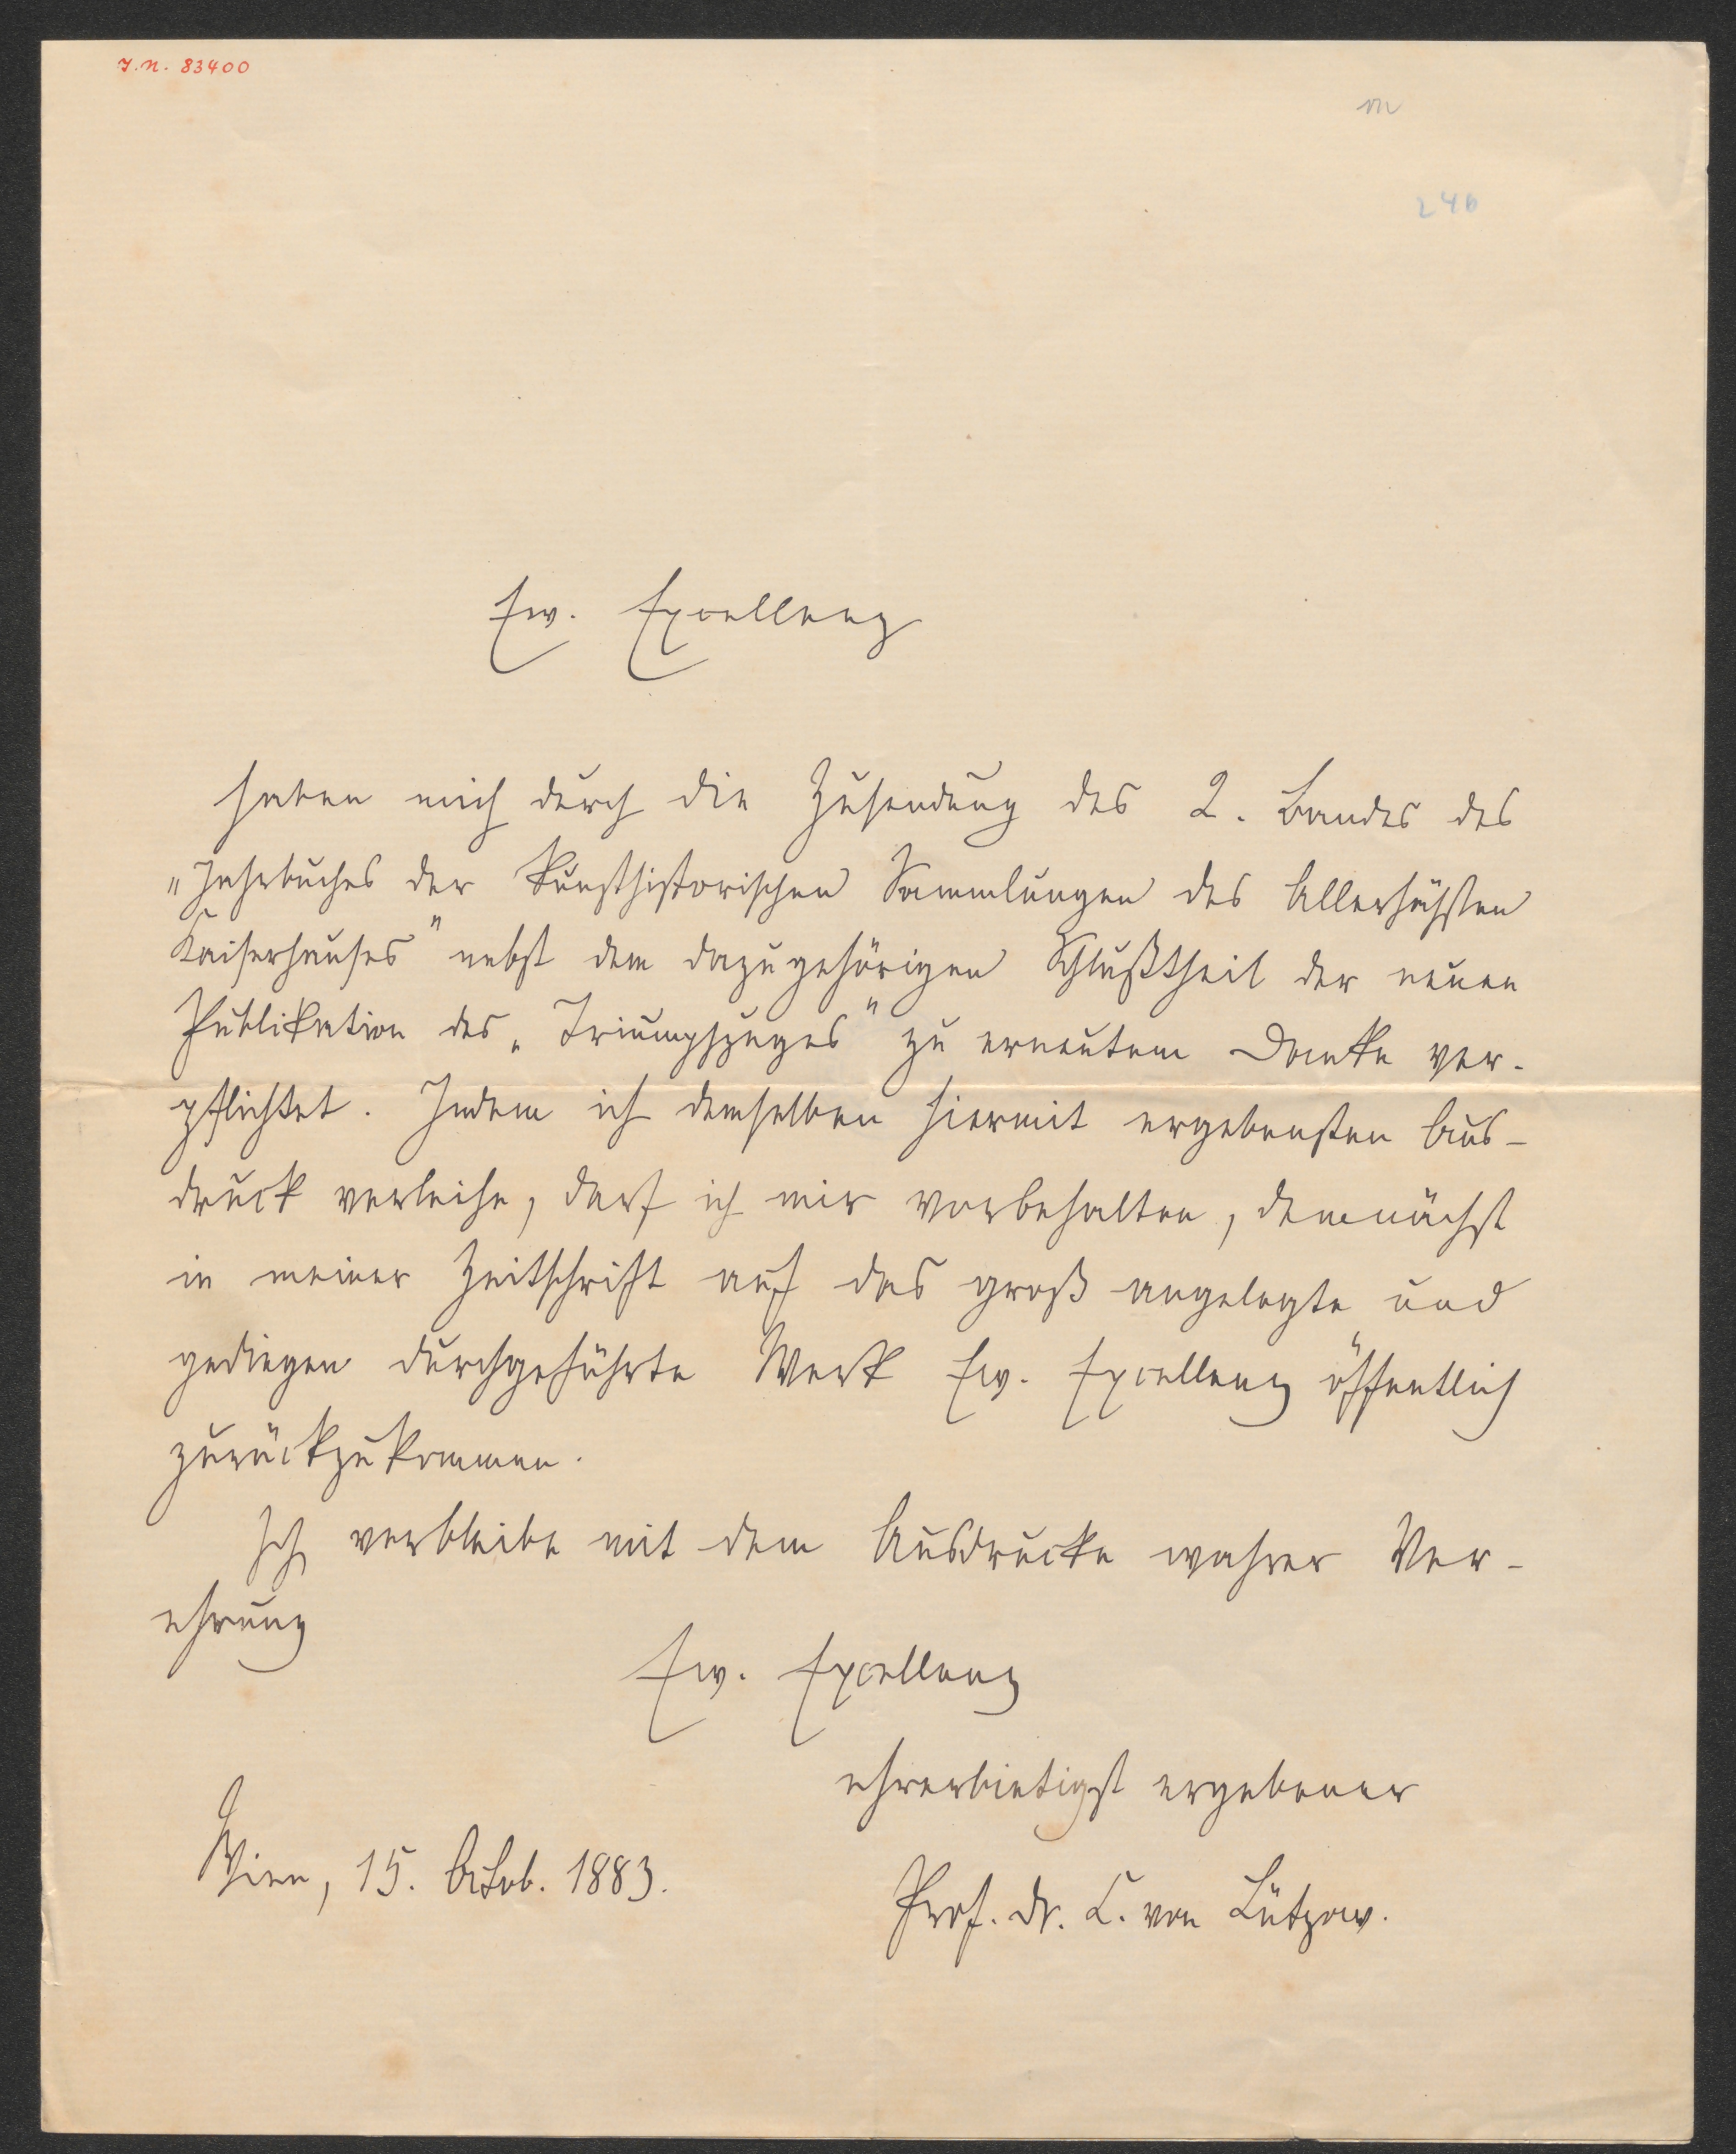 I.N. 83400
246
Ew. Excellenz
haben mich durch die Zusendung des 2. Bandes des
„Jahrbuches der kunsthistorischen Sammlungen des Allerhöchsten
Kaiserhauses" nebst dem dazugehörigen Schlußtheil der neuen
Publikation des „Triumphzuges" zu erneutem Danke ver-
pflichtet. Indem ich demselben hiermit ergebensten Aus-
druck verleihe, darf ich mir vorbehalten, demnächst
in meiner Zeitschrift auf das groß angelegte und
gediegen durchgeführte Werk Ew. Excellenz öffentlich
zurückzukommen.
Ich verbleibe mit dem Ausdrucke wahrer Ver-
ehrung
Ew. Excellenz
ehrerbietigst ergebener
Wien, 15. Octob. 1883.
Prof. Dr. C. von Lützow.